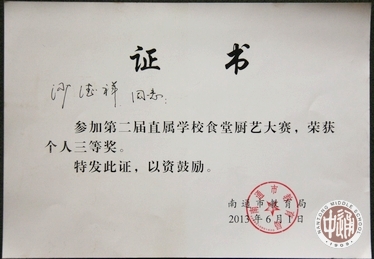 证 书
沙德祥 同志:
参加第二届直属学校食堂厨艺大赛，荣获
个人三等奖。
特发此证，以资鼓励。
南通市教育局
2013年6月1日
NANTONG MIDDLE SCHOOL
中通
1909